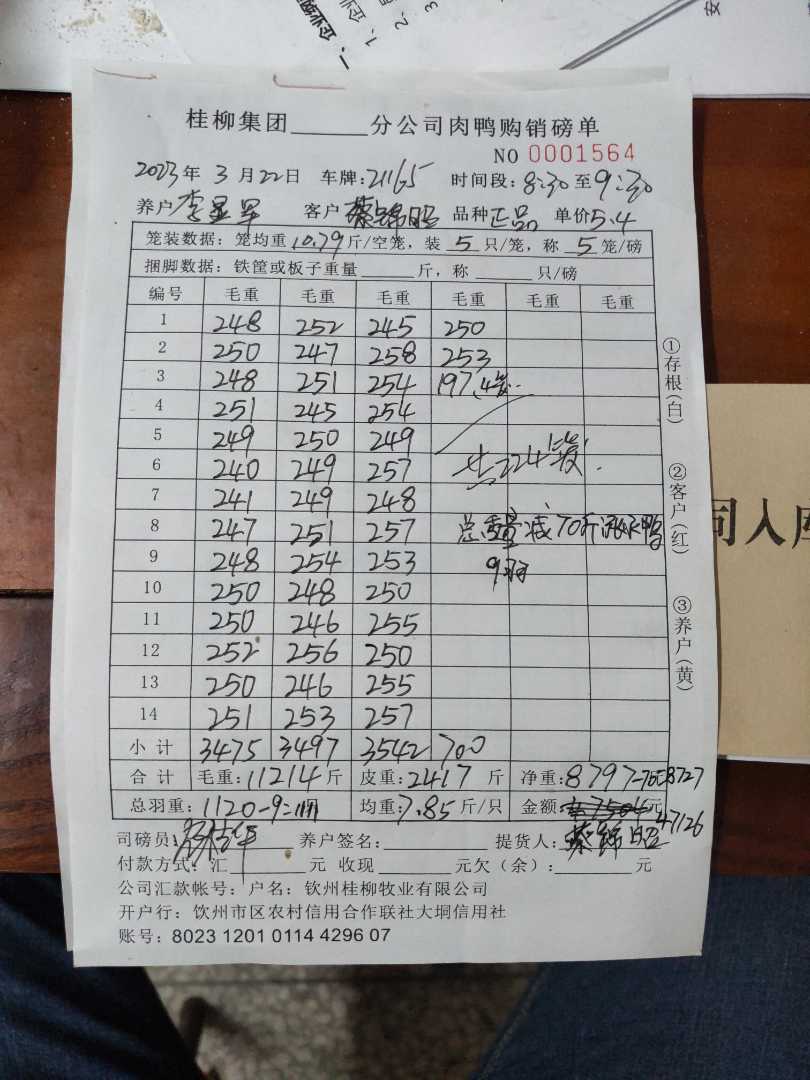 桂柳集团______分公司肉鸭购销磅单
NO 0001564
2023年 3 月 22 日 车牌: 21165 时间段: 8:30 至 9:30
养户 李 客户 蔡锦昭 品种 正品 单价 5.4
笼装数据: 笼均重 10.79 斤/空笼, 装 5 只/笼, 称 5 笼/磅
捆脚数据: 铁筐或板子重量______斤, 称______只/磅
编号 毛重 毛重 毛重 毛重 毛重 毛重
1 248 252 245 250
2 250 247 258 253
3 248 251 254 197 4笼
4 251 245 254
5 249 250 249
6 240 249 257 共224笼
7 241 249 248
8 247 251 257 总重量减70斤 鸭
9 248 254 253 9羽
10 250 248 250
11 250 246 255
12 252 256 250
13 250 246 255
14 251 253 257
小计 3475 3497 3542 700
合计 毛重: 11214 斤 皮重: 2417 斤 净重: 8797-70=8727
总羽重: 1120-9=1111 均重: 7.85 斤/只 金额: 元 47126
司磅员: 养户签名: 提货人: 蔡锦昭
付款方式: 汇______元 收现______元欠(余): ______元
公司汇款帐号: 户名: 钦州桂柳牧业有限公司
开户行: 饮州市区农村信用合作联社大垌信用社
账号: 8023 1201 0114 4296 07
①存根(白)
②客户(红)
③养户(黄)
同入库